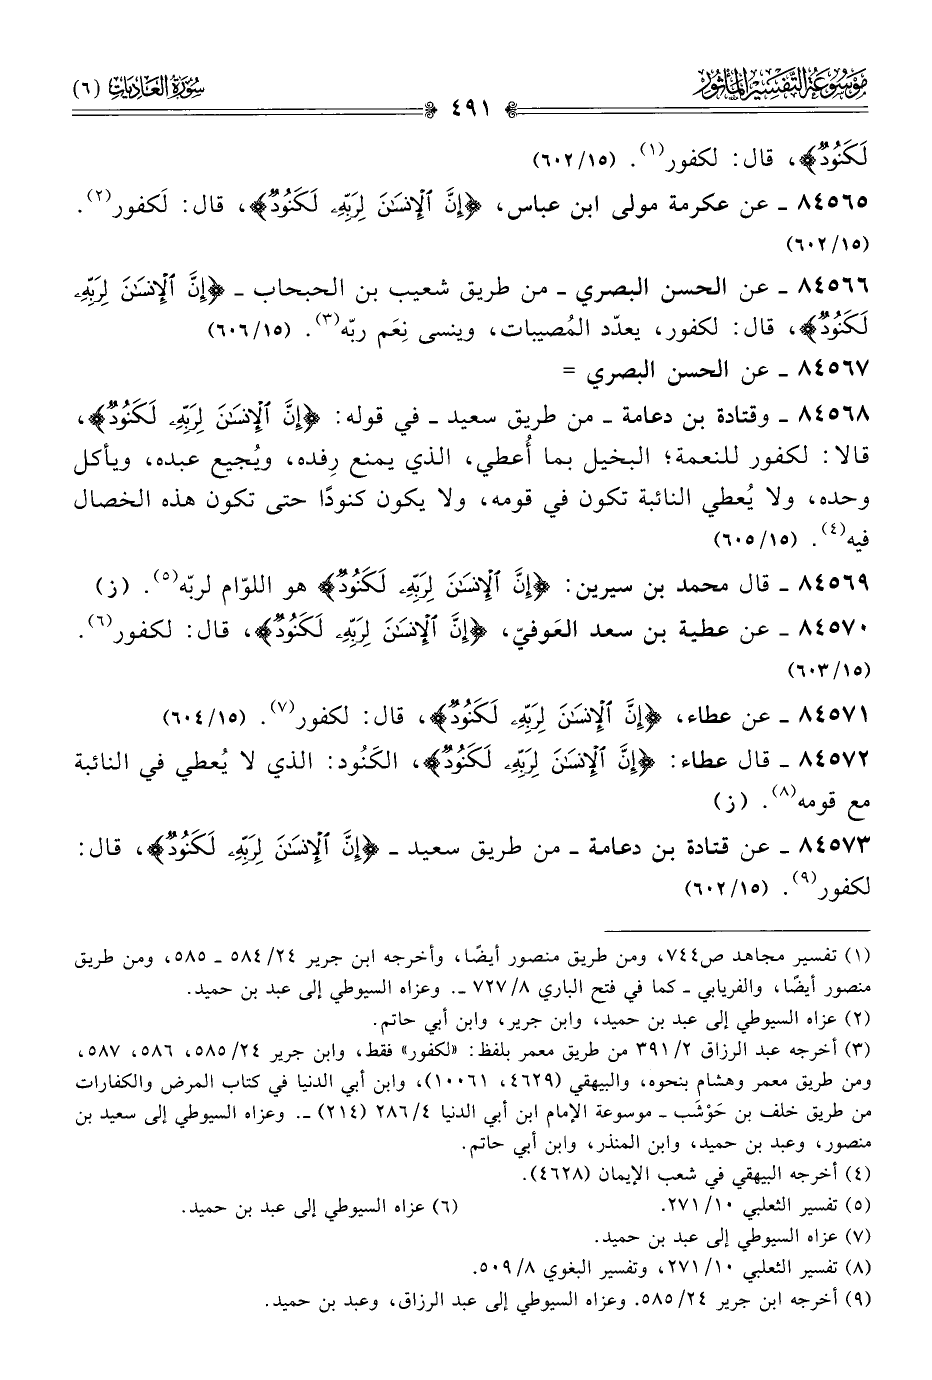 مَوْسُوعَةُ التَّفْسِيرِ المَأْثُورِ
سُورَةُ العَادِيَاتِ (٦)
٤٩١
لَكَنُودٌ﴾، قال: لكفور(١). (٦٠٢/١٥)
٨٤٥٦٥ ـ عن عكرمة مولى ابن عباس، ﴿إِنَّ ٱلْإِنسَٰنَ لِرَبِّهِۦ لَكَنُودٌ﴾، قال: لَكفور(٢).
(٦٠٢/١٥)
٨٤٥٦٦ ـ عن الحسن البصري ـ من طريق شعيب بن الحبحاب ـ ﴿إِنَّ ٱلْإِنسَٰنَ لِرَبِّهِۦ
لَكَنُودٌ﴾، قال: لكفور، يعدّد المُصيبات، وينسى نِعَم ربّه(٣). (٦٠٦/١٥)
٨٤٥٦٧ ـ عن الحسن البصري =
٨٤٥٦٨ ـ وقتادة بن دعامة ـ من طريق سعيد ـ في قوله: ﴿إِنَّ ٱلْإِنسَٰنَ لِرَبِّهِۦ لَكَنُودٌ﴾،
قالا: لكفور للنعمة؛ البخيل بما أُعطي، الذي يمنع رِفده، ويُجيع عبده، ويأكل
وحده، ولا يُعطي النائبة تكون في قومه، ولا يكون كنودًا حتى تكون هذه الخصال
فيه(٤). (٦٠٥/١٥)
٨٤٥٦٩ ـ قال محمد بن سيرين: ﴿إِنَّ ٱلْإِنسَٰنَ لِرَبِّهِۦ لَكَنُودٌ﴾ هو اللوّام لربّه(٥). (ز)
٨٤٥٧٠ ـ عن عطية بن سعد العَوفيّ، ﴿إِنَّ ٱلْإِنسَٰنَ لِرَبِّهِۦ لَكَنُودٌ﴾، قال: لكفور(٦).
(٦٠٣/١٥)
٨٤٥٧١ ـ عن عطاء، ﴿إِنَّ ٱلْإِنسَٰنَ لِرَبِّهِۦ لَكَنُودٌ﴾، قال: لكفور(٧). (٦٠٤/١٥)
٨٤٥٧٢ ـ قال عطاء: ﴿إِنَّ ٱلْإِنسَٰنَ لِرَبِّهِۦ لَكَنُودٌ﴾، الكَنُود: الذي لا يُعطي في النائبة
مع قومه(٨). (ز)
٨٤٥٧٣ ـ عن قتادة بن دعامة ـ من طريق سعيد ـ ﴿إِنَّ ٱلْإِنسَٰنَ لِرَبِّهِۦ لَكَنُودٌ﴾، قال:
لكفور(٩). (٦٠٢/١٥)
(١) تفسير مجاهد ص٧٤٤، ومن طريق منصور أيضًا، وأخرجه ابن جرير ٢٤/ ٥٨٤ ـ ٥٨٥، ومن طريق
منصور أيضًا، والفريابي ـ كما في فتح الباري ٨/ ٧٢٧ ـ. وعزاه السيوطي إلى عبد بن حميد.
(٢) عزاه السيوطي إلى عبد بن حميد، وابن جرير، وابن أبي حاتم.
(٣) أخرجه عبد الرزاق ٢/ ٣٩١ من طريق معمر بلفظ: «لكفور» فقط، وابن جرير ٢٤/ ٥٨٥، ٥٨٦، ٥٨٧،
ومن طريق معمر وهشام بنحوه، والبيهقي (٤٦٢٩، ١٠٠٦١)، وابن أبي الدنيا في كتاب المرض والكفارات
من طريق خلف بن حَوْشَب ـ موسوعة الإمام ابن أبي الدنيا ٤/ ٢٨٦ (٢١٤) ـ. وعزاه السيوطي إلى سعيد بن
منصور، وعبد بن حميد، وابن المنذر، وابن أبي حاتم.
(٤) أخرجه البيهقي في شعب الإيمان (٤٦٢٨).
(٥) تفسير الثعلبي ١٠/ ٢٧١. (٦) عزاه السيوطي إلى عبد بن حميد.
(٧) عزاه السيوطي إلى عبد بن حميد.
(٨) تفسير الثعلبي ١٠/ ٢٧١، وتفسير البغوي ٨/ ٥٠٩.
(٩) أخرجه ابن جرير ٢٤/ ٥٨٥. وعزاه السيوطي إلى عبد الرزاق، وعبد بن حميد.